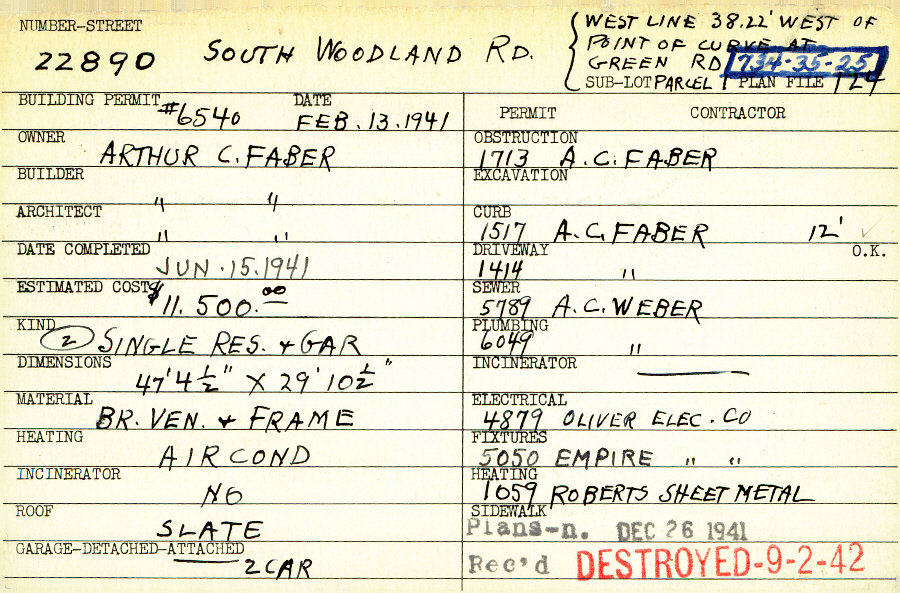 NUMBER-STREET
22890 SOUTH WOODLAND RD.
WEST LINE 38.22' WEST OF
POINT OF CURVE AT
GREEN RD 734-35-25
SUB-LOT PARCEL 1 PLAN FILE 124
BUILDING PERMIT #6540 DATE FEB. 13. 1941
OWNER ARTHUR C. FABER
BUILDER " "
ARCHITECT " "
DATE COMPLETED JUN. 15. 1941
ESTIMATED COST $11. 500.00
KIND (2) SINGLE RES. + GAR
DIMENSIONS 47' 4 1/2" X 29' 10 1/2"
MATERIAL BR. VEN. + FRAME
HEATING AIR COND
INCINERATOR NO
ROOF SLATE
GARAGE-DETACHED-ATTACHED 2 CAR
PERMIT CONTRACTOR
OBSTRUCTION
1713 A. C. FABER
EXCAVATION
CURB
1517 A. C. FABER 12' ✓
DRIVEWAY O.K.
1414 "
SEWER
5789 A. C. WEBER
PLUMBING
6049 "
INCINERATOR
ELECTRICAL
4879 OLIVER ELEC. CO
FIXTURES
5050 EMPIRE " "
HEATING
1059 ROBERTS SHEET METAL
SIDEWALK
Plans-n. DEC 26 1941
Rec'd DESTROYED-9-2-42